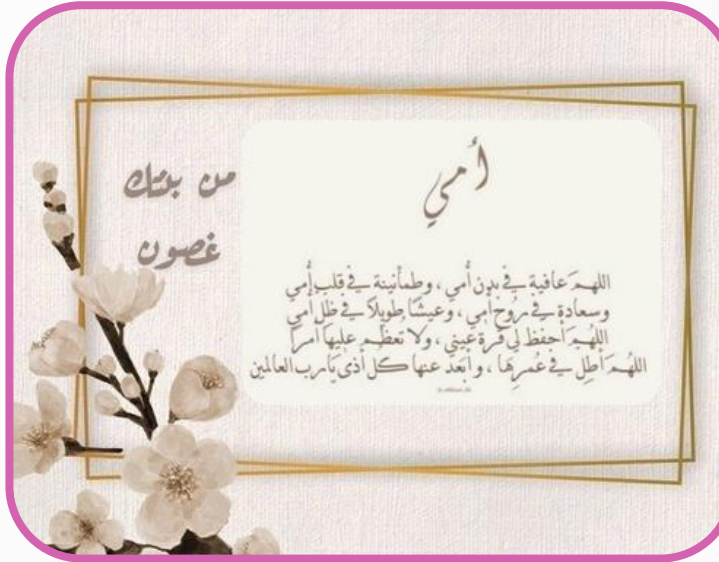 أمي
من بنتك
غصون
اللهم عافية في بدن أمي ، وطمأنينة في قلب أمي
وسعادة في رُوح أمي ، وعيشًا طويلًا في ظل أمي
اللهُم أحفظ لي قرة عيني ، ولا تعظم عليها أمرًا
اللهُم أطِل في عُمرها ، وابعد عنها كل أذى يا رب العالمين